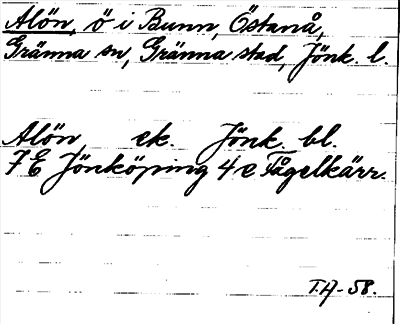 Alön, ö i Bunn, Östanå,
Gränna sn, Gränna stad, Jönk. l.
Alön ek. Jönk. bl.
7 E Jönköping 4 e Fågelkärr.
T.H-58.